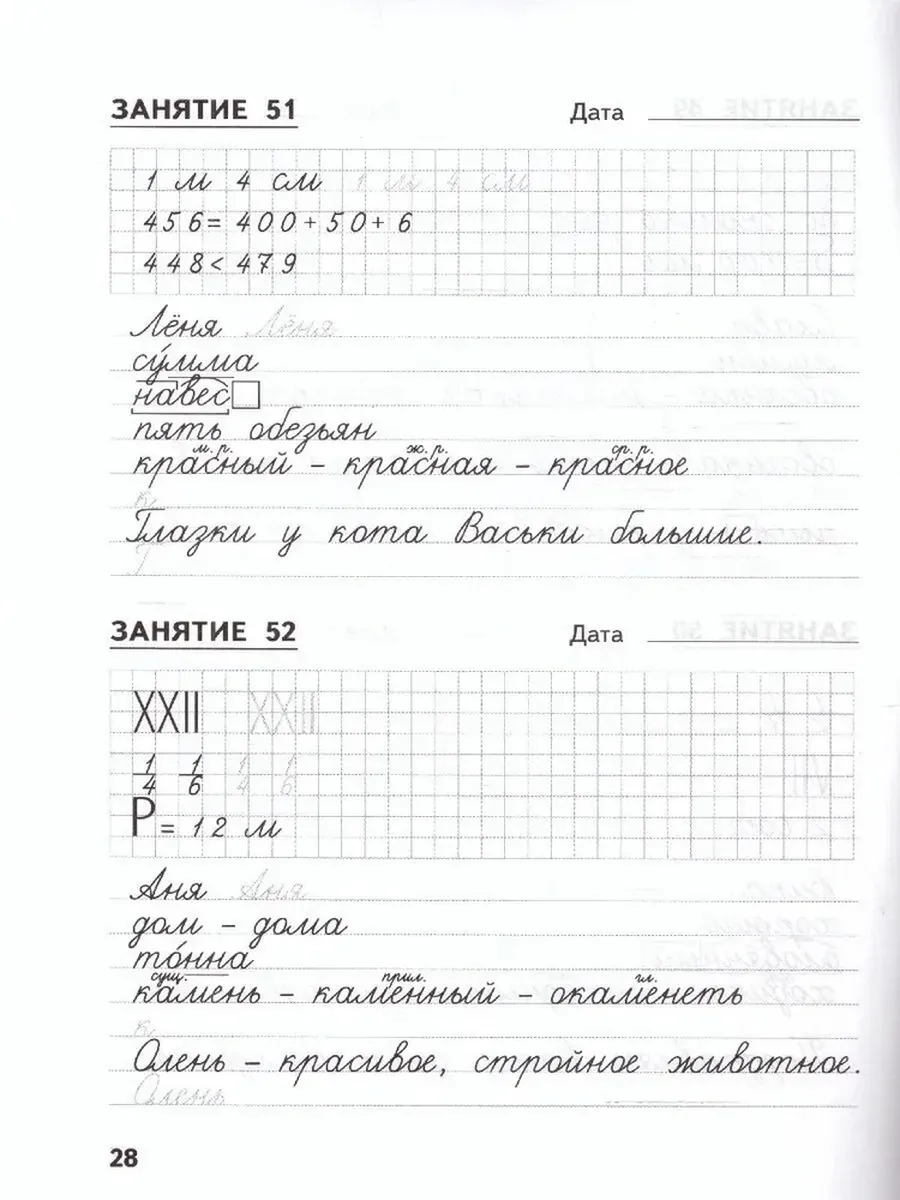 ЗАНЯТИЕ 51 Дата
1 м 4 см 1 м 4 см
456 = 400 + 50 + 6
448 < 479
Лёня Лёня
су́мма
навес
пять обезьян
м.р. ж.р. ср.р.
красный – красная – красное
к
Глазки у кота Васьки большие.
Г
ЗАНЯТИЕ 52 Дата
XXII XXII
1/4 1/6 1/4 1/6
P = 12 м
Аня Аня
дом – дома
то́нна
сущ. прил. гл.
камень – каменный – окаменеть
к
Олень – красивое, стройное животное.
Олень
28